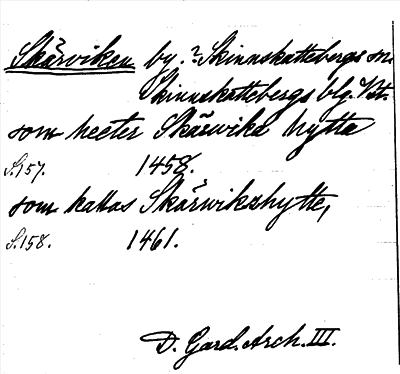 Skärviken by. ? Skinnskattebergs sn.
Skinnskattebergs blg. Vstm.
som heeter Skärwiks hytta
S. 157. 1458.
som kallas Skärwikshytte,
S. 158. 1461.
D. Gard. Arch. III.